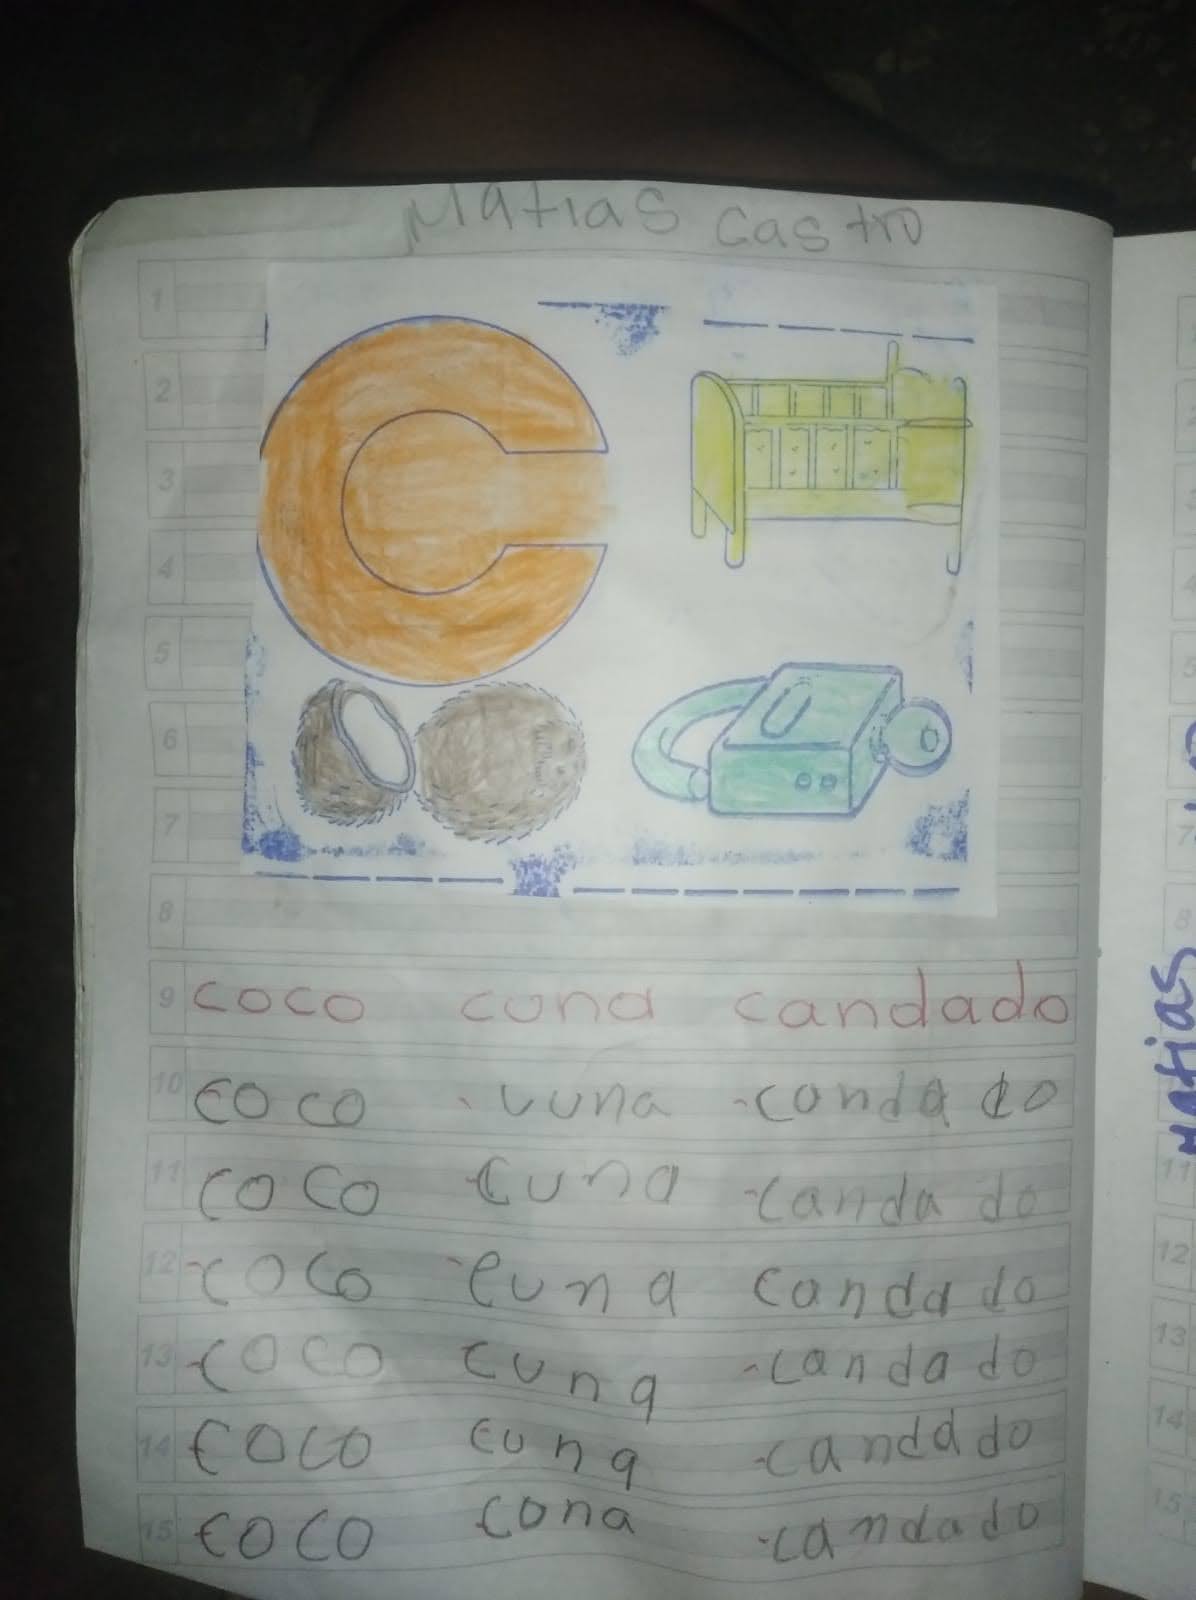 Matias Castro
1
2
3
4
5
6
7
8
9 coco cuna candado
10 coco cuna candado
11 coco cuna candado
12 coco cuna candado
13 coco cuna candado
14 coco cuna candado
15 coco cona candado
Matias
7
8
11
12
13
14
15